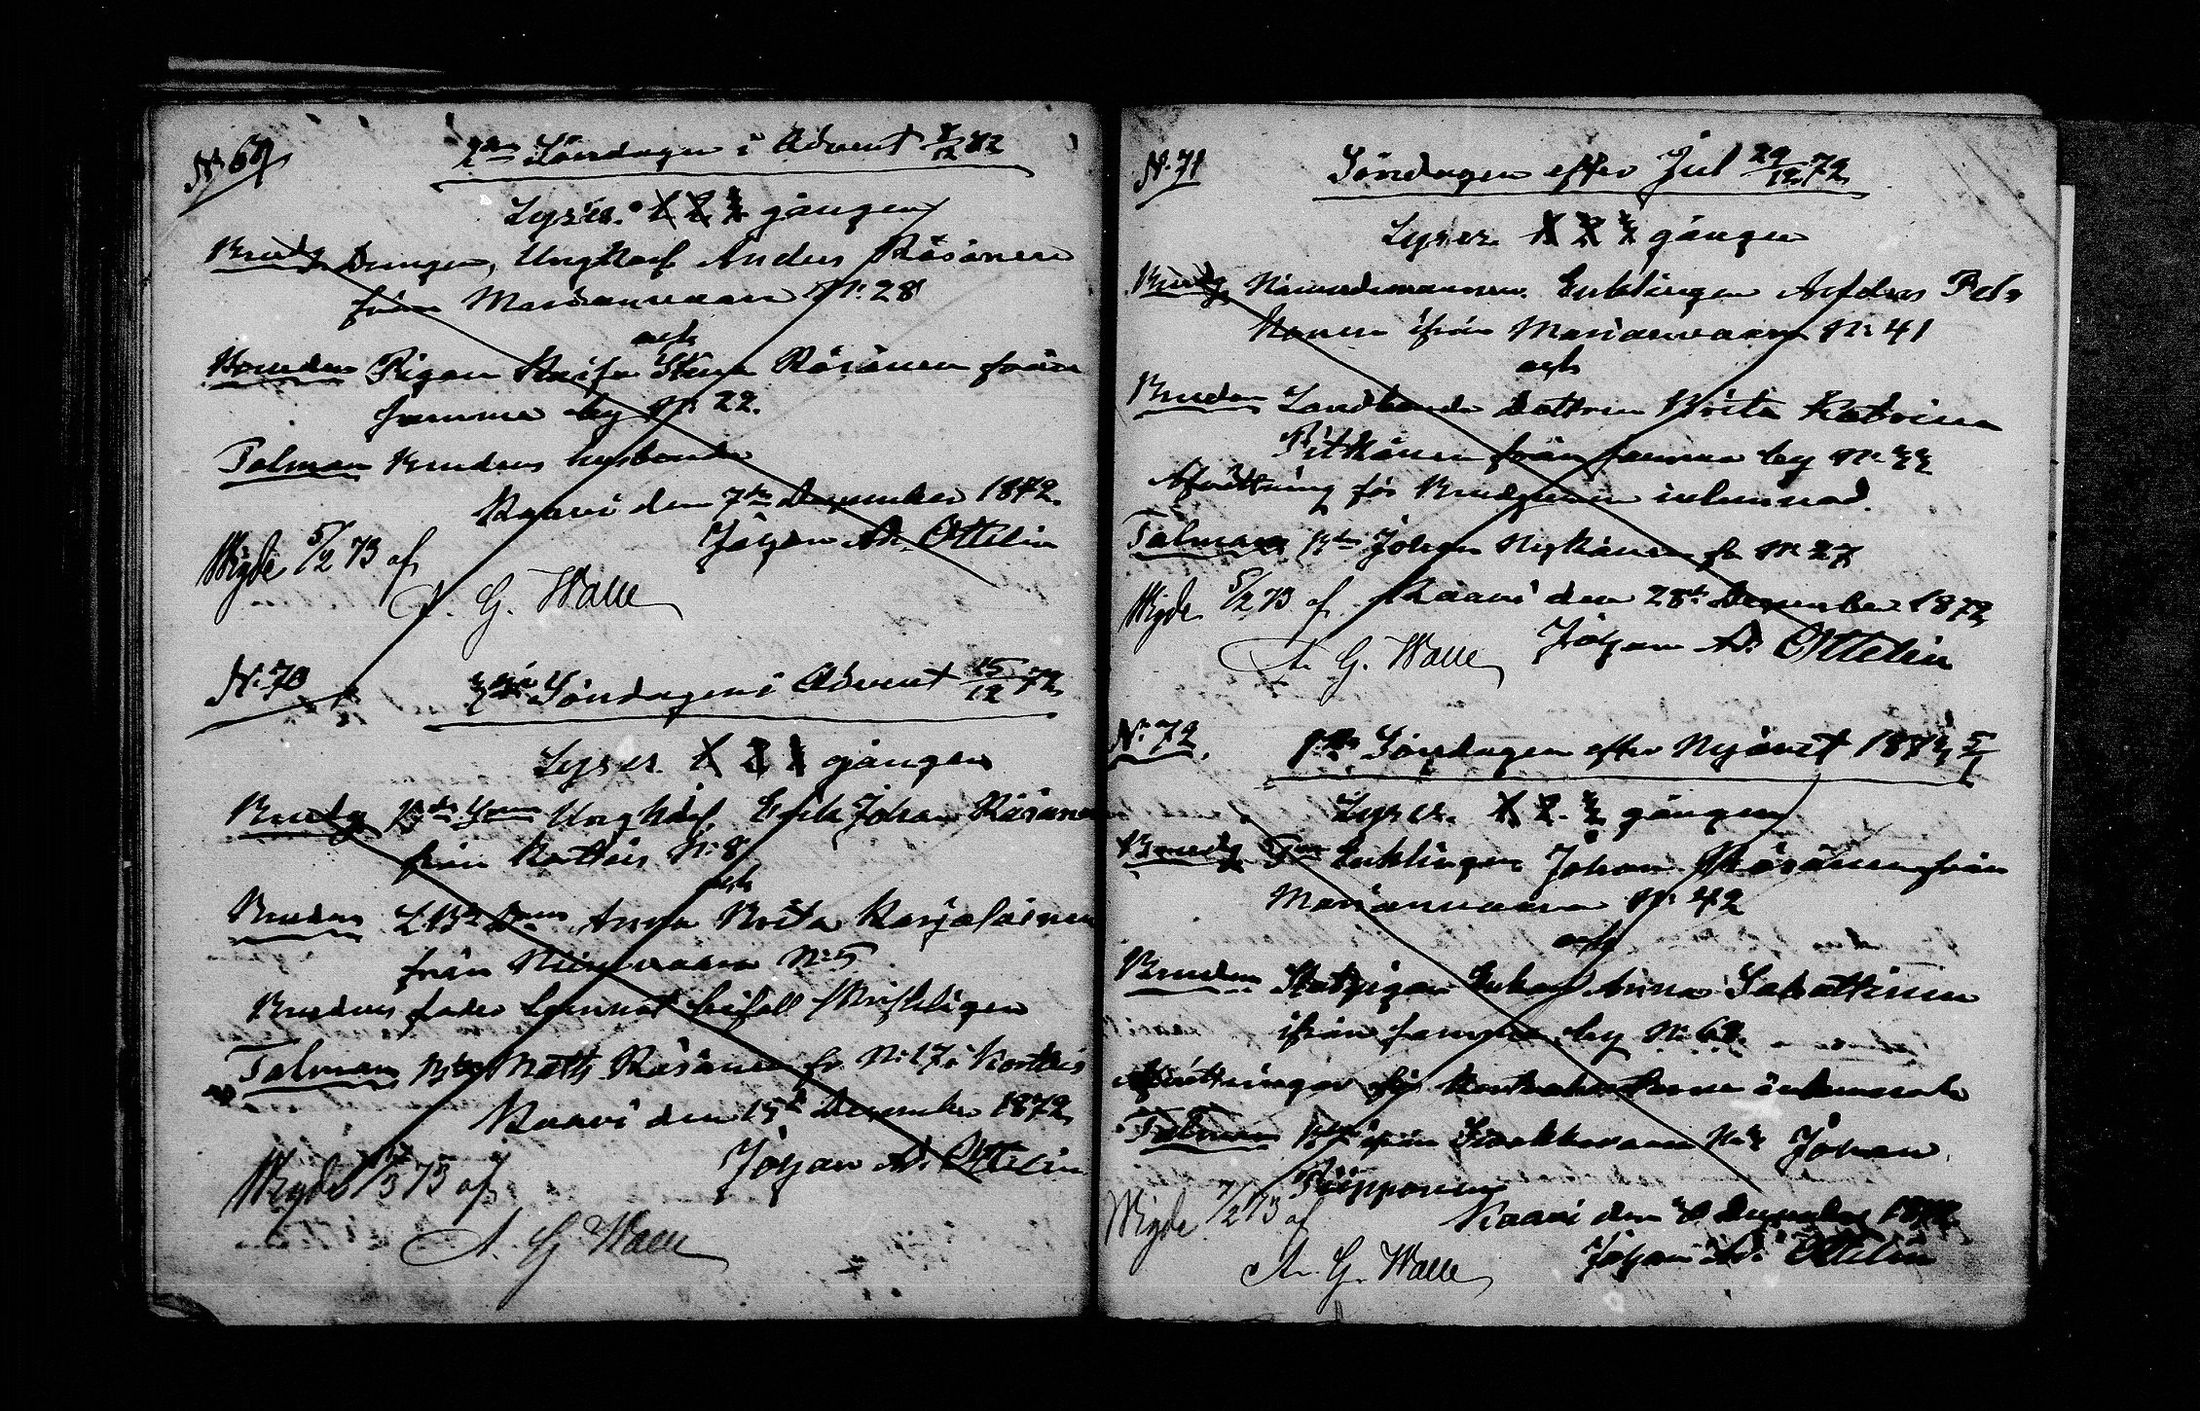 N:69
2dra Söndagen i Advent 8/12 72
Lyses. 1 2 3 gången
Brudg Drängen, Ungkarl Anders Räsänen
från Marianvaara N: 28
och
Bruden Pigan Kaisa Stina Räsänen från
samma by N: 22.
Talman Brudens husbonde
Kaavi den 7de December 1872.
Johan Ad. Ottelin
Wigde 5/2 73 af
A. G. Walle
N: 70
3dje Söndagen i Advent 15/12 72
Lyses. 1 2 3 gången
Brudg Bde Son Ungkarl Erik Johan Räsänen
från Kortteis N: 8
och
Bruden Anna Brita Karjalainen
från Niinivaara N: 5
Brudens fader lemnat bifall
Talman Matts Räsänen fr N: 17 i Kortteis
Kaavi den 15de December 1872
Johan Ad. Ottelin
Wigde 73 af
A. G. Walle
N. 71
Söndagen efter Jul 29/12 72
Lyses. 1 2 3 gången
Brudg Nämndemannen. Enklingen Anders Pel-
konen ifrån Marianvaara N: 41
och
Bruden Landbonde dottren Brita Katrina
Pitkänen från samma by N: 33
Afvittring för Brudgumen inlemnad.
Talman Bden Johan Nykänen fr N: 27
Wigde 5/2 73 af
Kaavi den 28de December 1872
Johan Ad. Ottelin
A. G. Walle
N: 72.
1sta Söndagen efter Nyåret 1873 5/1
Lyses. 1 2. 3 gången
Brudg Enklingen Johan Räsänen från
Marianvaara N: 42
och
Bruden Enkan Anna Sakatkinen
ifrån samma by N: 68.
Afvittringar för Kontrahenterna inlemnade
Talman ifrån Johan
Piipponen
Kaavi den
Johan Ad. Ottelin
Wigde 7/2 73 af
A. G. Walle